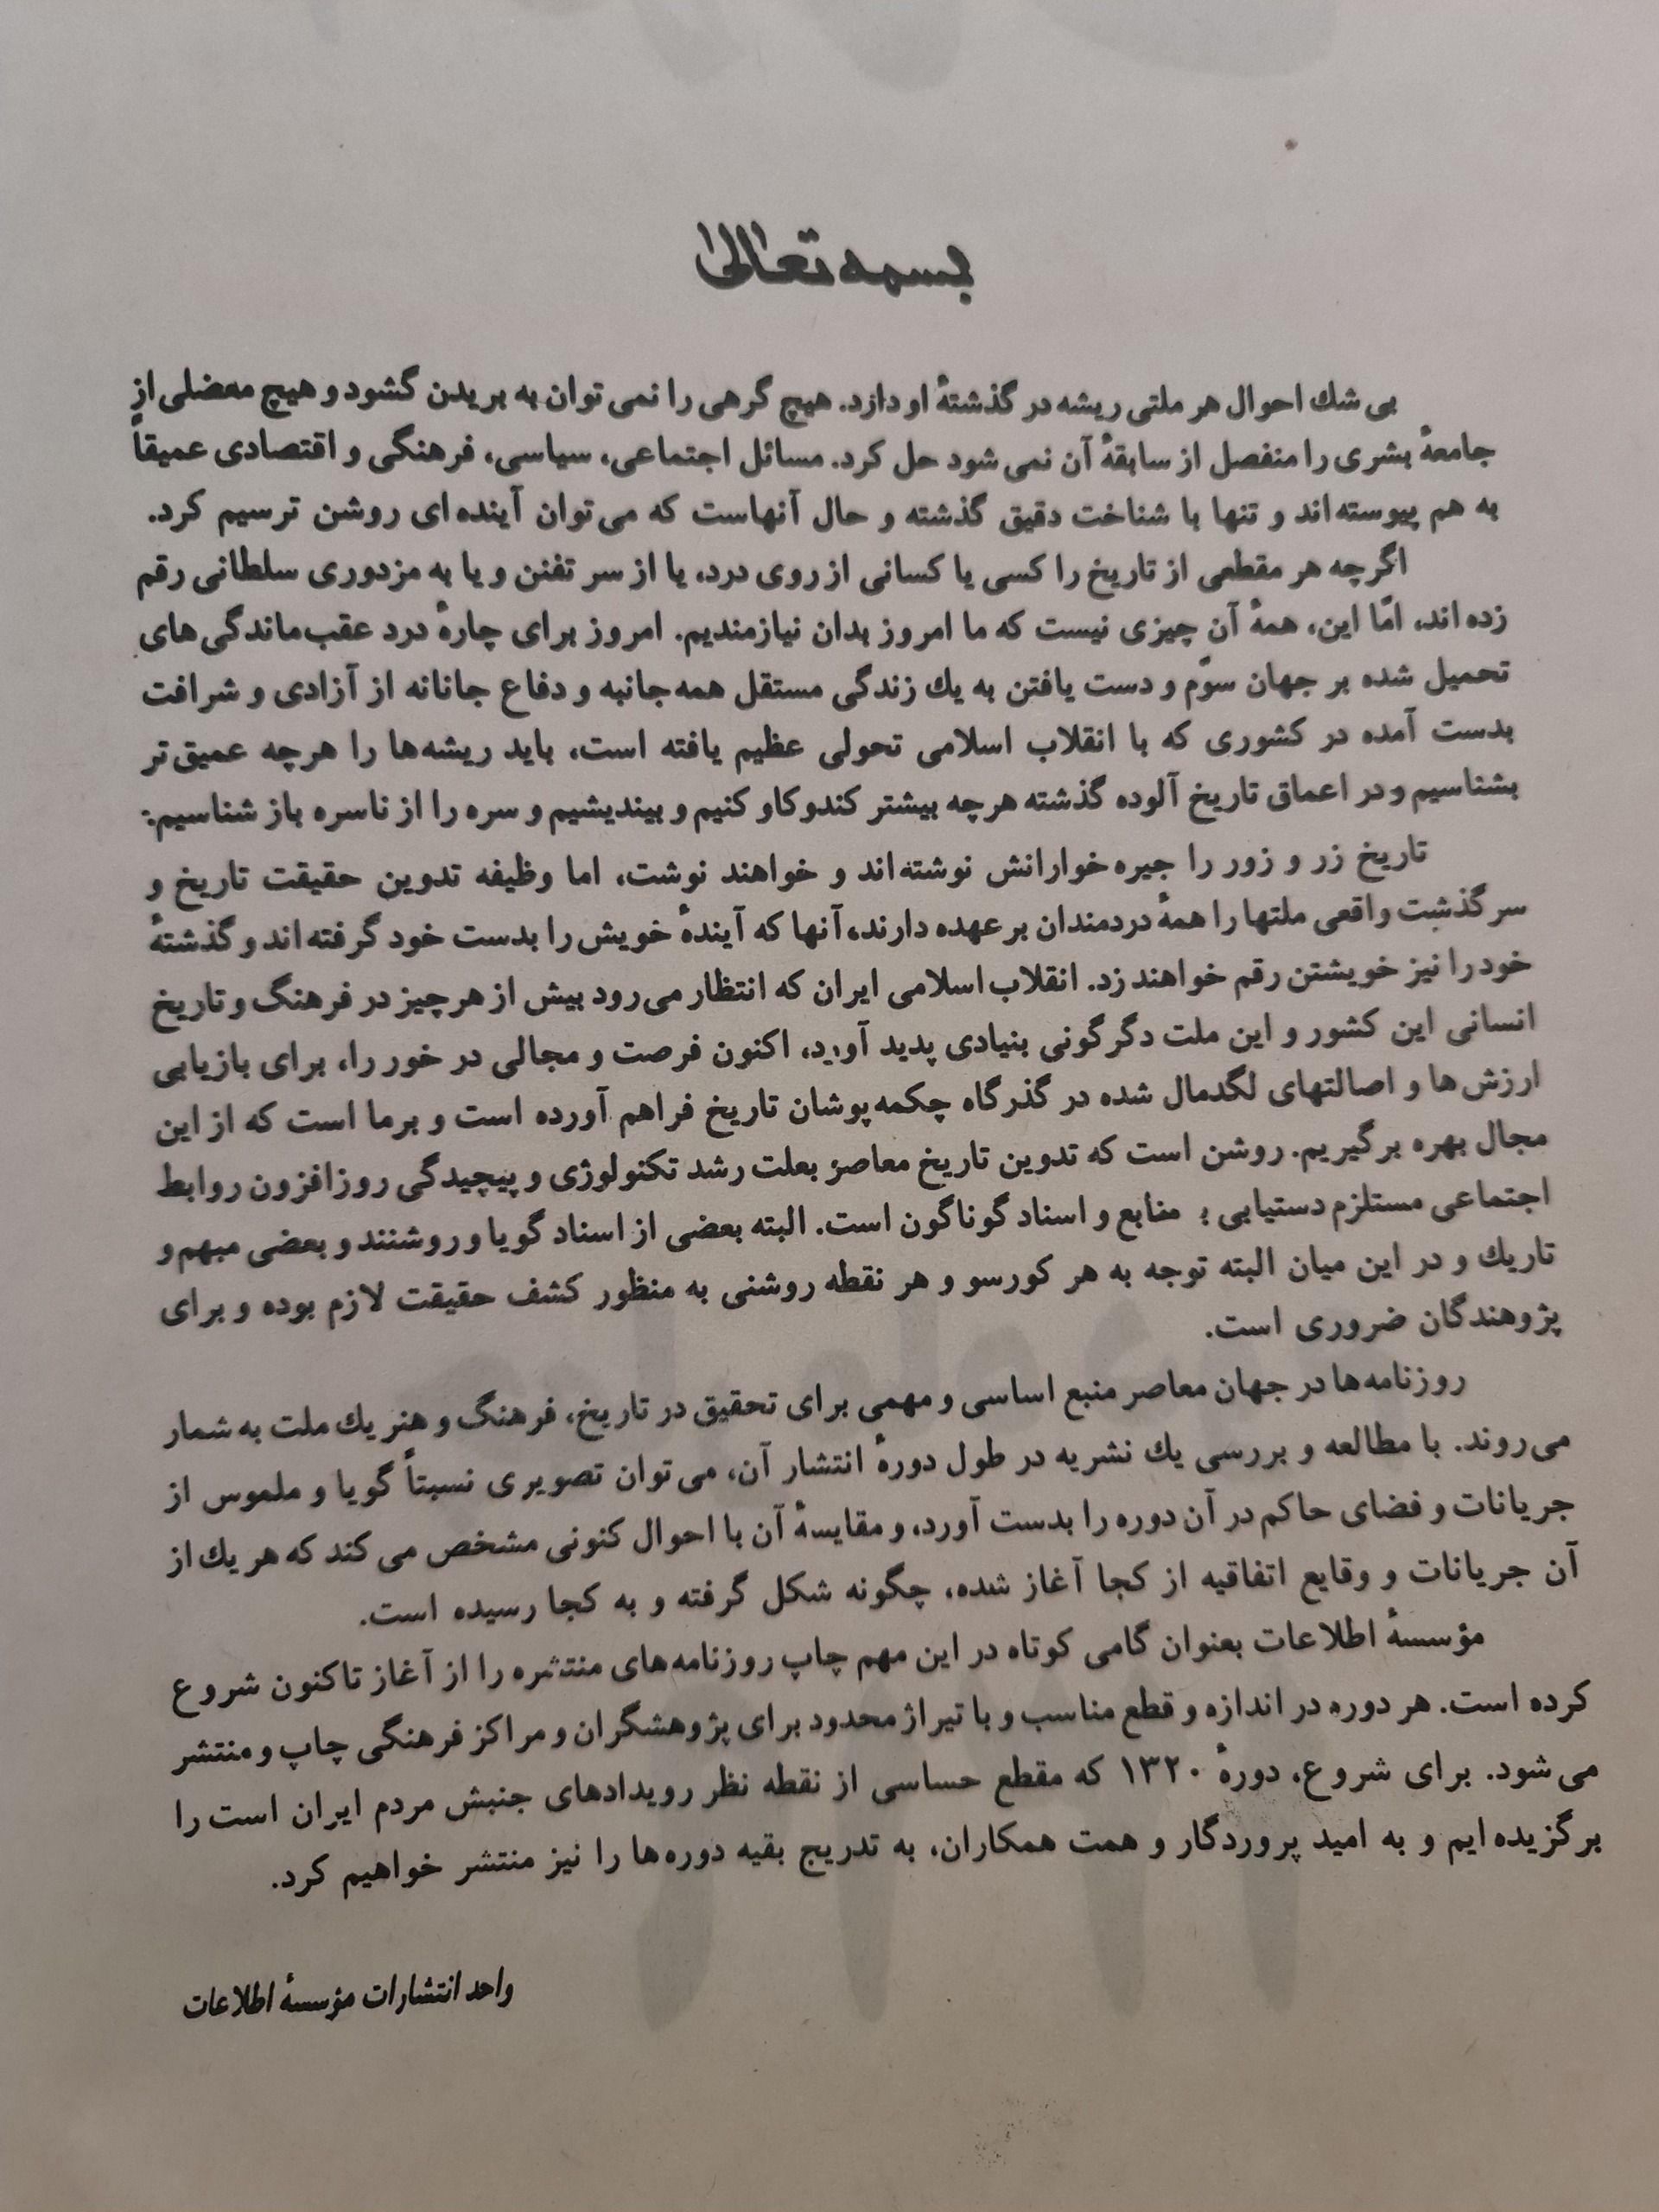 بسمه تعالی
بی شك احوال هر ملتی ریشه در گذشتهٔ او دارد. هیچ گرهی را نمی توان به بریدن گشود و هیچ معضلی از
جامعهٔ بشری را منفصل از سابقهٔ آن نمی شود حل کرد. مسائل اجتماعی، سیاسی، فرهنگی و اقتصادی عمیقاً
به هم پیوسته اند و تنها با شناخت دقیق گذشته و حال آنهاست که می توان آینده ای روشن ترسیم کرد.
اگرچه هر مقطعی از تاریخ را کسی یا کسانی از روی درد، یا از سر تفنن و یا به مزدوری سلطانی رقم
زده اند، امّا این، همهٔ آن چیزی نیست که ما امروز بدان نیازمندیم. امروز برای چارهٔ درد عقب ماندگی های
تحمیل شده بر جهان سوّم و دست یافتن به یك زندگی مستقل همه جانبه و دفاع جانانه از آزادی و شرافت
بدست آمده در کشوری که با انقلاب اسلامی تحولی عظیم یافته است، باید ریشه ها را هرچه عمیق تر
بشناسیم و در اعماق تاریخ آلوده گذشته هرچه بیشتر کندوکاو کنیم و بیندیشیم و سره را از ناسره باز شناسیم:
تاریخ زر و زور را جیره خوارانش نوشته اند و خواهند نوشت، اما وظیفه تدوین حقیقت تاریخ و
سرگذشت واقعی ملتها را همهٔ دردمندان بر عهده دارند، آنها که آیندهٔ خویش را بدست خود گرفته اند و گذشتهٔ
خود را نیز خویشتن رقم خواهند زد. انقلاب اسلامی ایران که انتظار می رود بیش از هرچیز در فرهنگ و تاریخ
انسانی این کشور و این ملت دگرگونی بنیادی پدید آورد، اکنون فرصت و مجالی در خور را، برای بازیابی
ارزش ها و اصالتهای لگدمال شده در گذرگاه چکمه پوشان تاریخ فراهم آورده است و برما است که از این
مجال بهره برگیریم. روشن است که تدوین تاریخ معاصر بعلت رشد تکنولوژی و پیچیدگی روزافزون روابط
اجتماعی مستلزم دستیابی ب منابع و اسناد گوناگون است. البته بعضی از اسناد گویا و روشنند و بعضی مبهم و
تاریك و در این میان البته توجه به هر کورسو و هر نقطه روشنی به منظور کشف حقیقت لازم بوده و برای
پژوهندگان ضروری است.
روزنامه ها در جهان معاصر منبع اساسی و مهمی برای تحقیق در تاریخ، فرهنگ و هنر یك ملت به شمار
می روند. با مطالعه و بررسی یك نشریه در طول دورهٔ انتشار آن، می توان تصویری نسبتاً گویا و ملموس از
جریانات و فضای حاکم در آن دوره را بدست آورد، و مقایسهٔ آن با احوال کنونی مشخص می کند که هر یك از
آن جریانات و وقایع اتفاقیه از کجا آغاز شده، چگونه شکل گرفته و به کجا رسیده است.
مؤسسهٔ اطلاعات بعنوان گامی کوتاه در این مهم چاپ روزنامه های منتشره را از آغاز تاکنون شروع
کرده است. هر دوره در اندازه و قطع مناسب و با تیراژ محدود برای پژوهشگران و مراکز فرهنگی چاپ و منتشر
می شود. برای شروع، دورهٔ ۱۳۲۰ که مقطع حساسی از نقطه نظر رویدادهای جنبش مردم ایران است را
برگزیده ایم و به امید پروردگار و همت همکاران، به تدریج بقیه دوره ها را نیز منتشر خواهیم کرد.
واحد انتشارات مؤسسهٔ اطلاعات